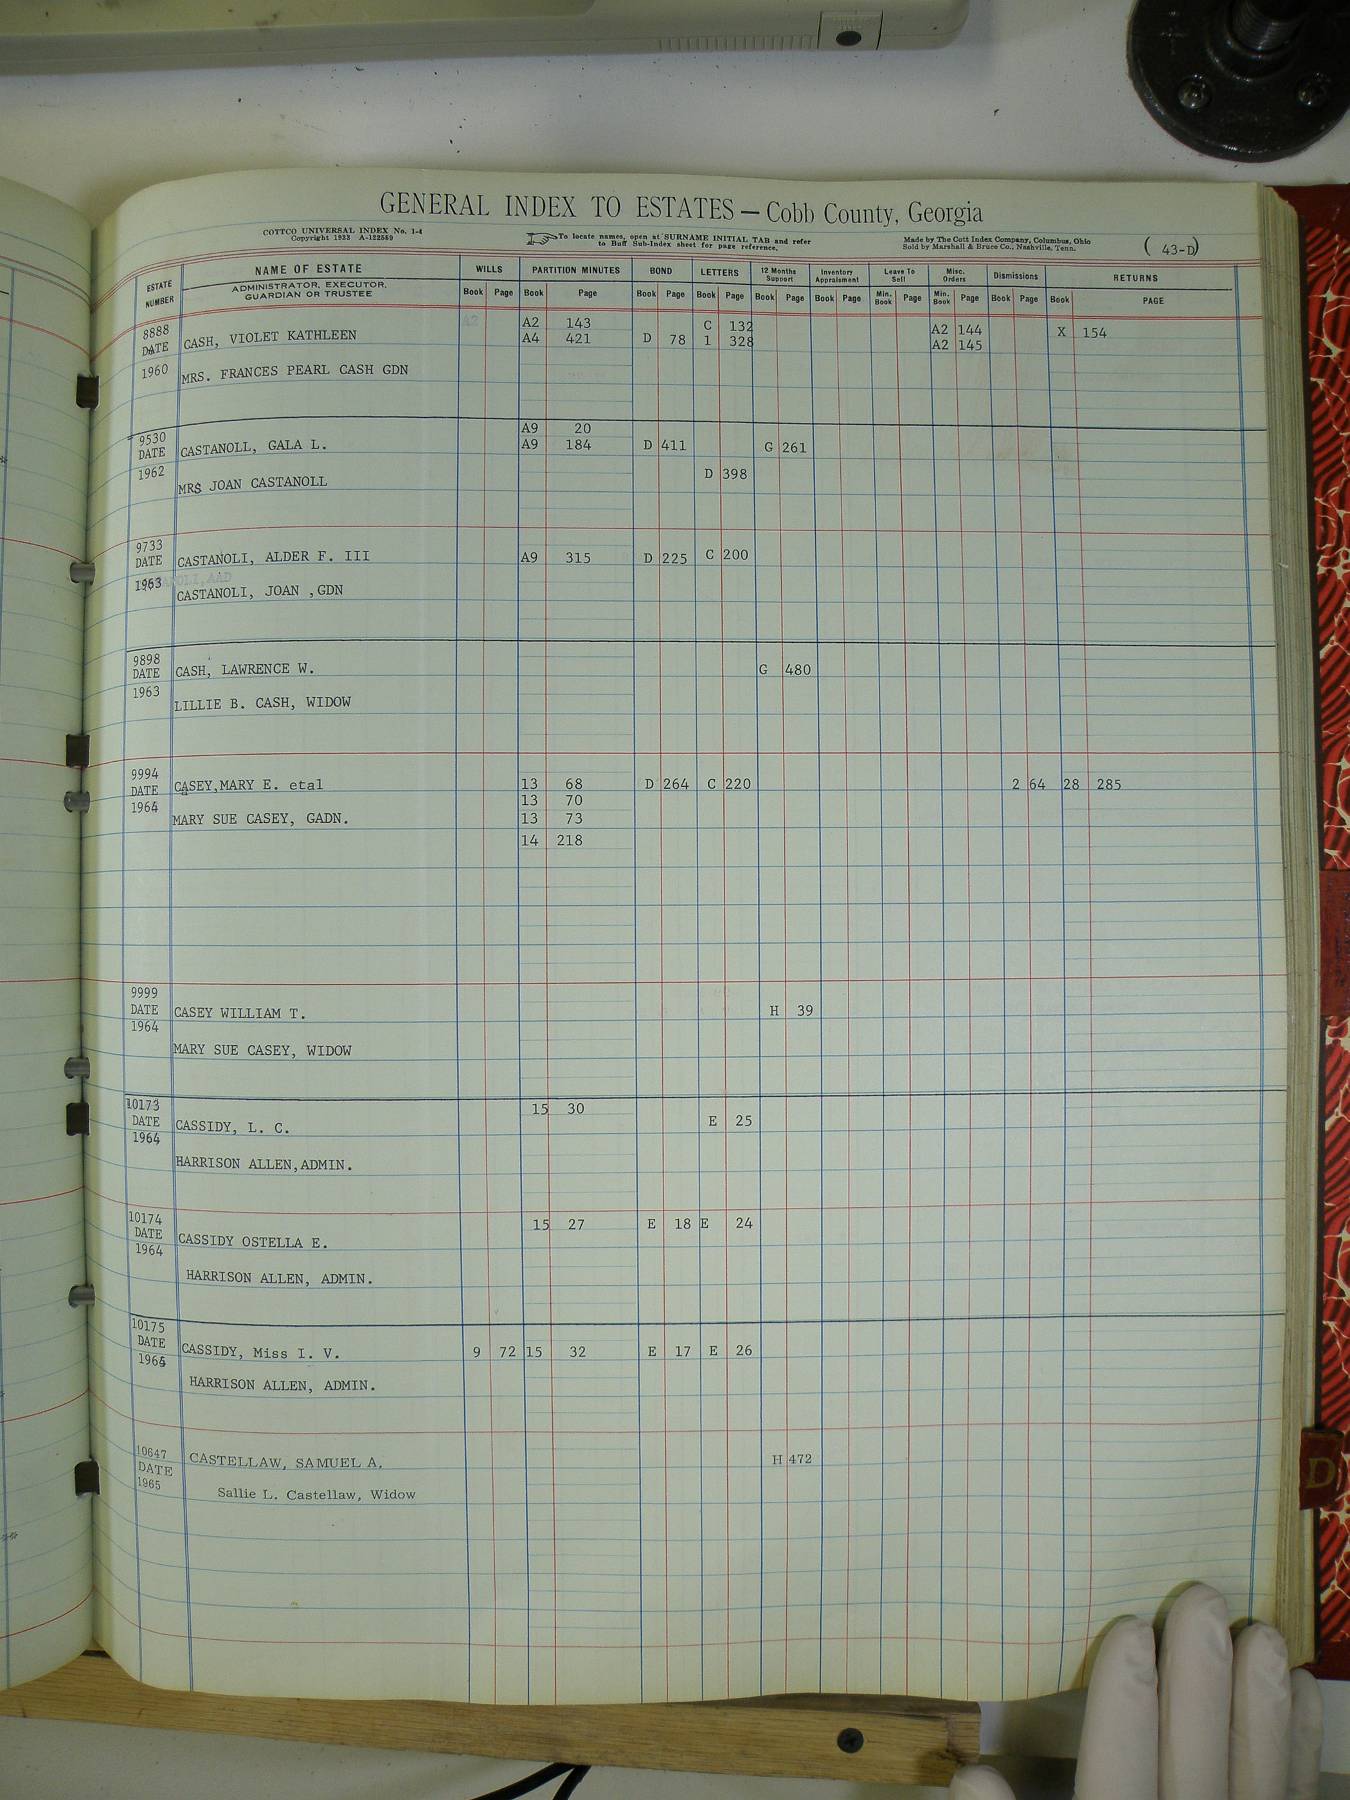 GENERAL INDEX TO ESTATES — Cobb County, Georgia
COTTCO UNIVERSAL INDEX No. 1-4
Copyright 1933 A-122569
To locate names, open at SURNAME INITIAL TAB and refer
to Buff Sub-Index sheet for page reference.
Made by The Cott Index Company, Columbus, Ohio
Sold by Marshall & Bruce Co., Nashville, Tenn.
( 43-D )
ESTATE NUMBER
NAME OF ESTATE
ADMINISTRATOR, EXECUTOR,
GUARDIAN OR TRUSTEE
WILLS PARTITION MINUTES BOND LETTERS 12 Months Support Inventory Appraisment Leave To Sell Misc. Orders Dismissions RETURNS
Book Page Book Page Book Page Book Page Book Page Book Page Min. Book Page Min. Book Page Book Page Book PAGE
8888 A2 A2 143 C 132 A2 144 X 154
DATE CASH, VIOLET KATHLEEN A4 421 D 78 1 328 A2 145
1960 MRS. FRANCES PEARL CASH GDN
9530 A9 20
DATE CASTANOLL, GALA L. A9 184 D 411 G 261
1962 D 398
MRS JOAN CASTANOLL
9733
DATE CASTANOLI, ALDER F. III A9 315 D 225 C 200
1963
CASTANOLI, JOAN ,GDN
9898
DATE CASH, LAWRENCE W. G 480
1963
LILLIE B. CASH, WIDOW
9994
DATE CASEY,MARY E. etal 13 68 D 264 C 220 2 64 28 285
1964 13 70
MARY SUE CASEY, GADN. 13 73
14 218
9999
DATE CASEY WILLIAM T. H 39
1964
MARY SUE CASEY, WIDOW
10173 15 30
DATE CASSIDY, L. C. E 25
1964
HARRISON ALLEN,ADMIN.
10174 15 27 E 18 E 24
DATE CASSIDY OSTELLA E.
1964
HARRISON ALLEN, ADMIN.
10175
DATE CASSIDY, Miss I. V. 9 72 15 32 E 17 E 26
1964
HARRISON ALLEN, ADMIN.
10647
DATE CASTELLAW, SAMUEL A. H 472
1965
Sallie L. Castellaw, Widow
D